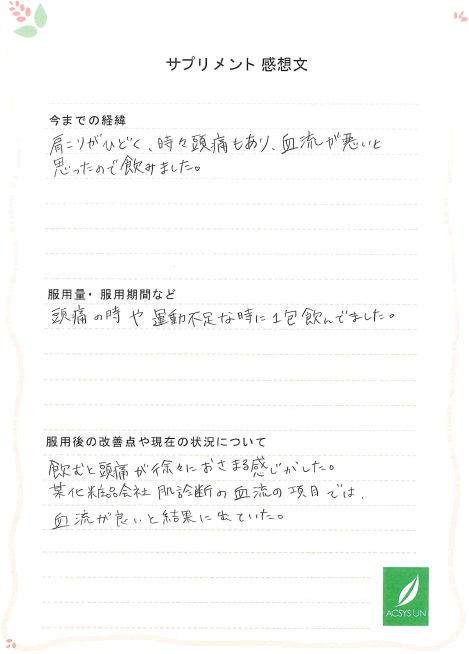 サプリメント 感想文
今までの経緯
肩こりがひどく、時々頭痛もあり、血流が悪いと
思ったので飲みました。
服用量・服用期間など
頭痛の時や運動不足な時に1包飲んでました。
服用後の改善点や現在の状況について
飲むと頭痛が徐々におさまる感じがした。
某化粧品会社 肌診断の血流の項目では、
血流が良いと結果に出ていた。
ACSYSUN